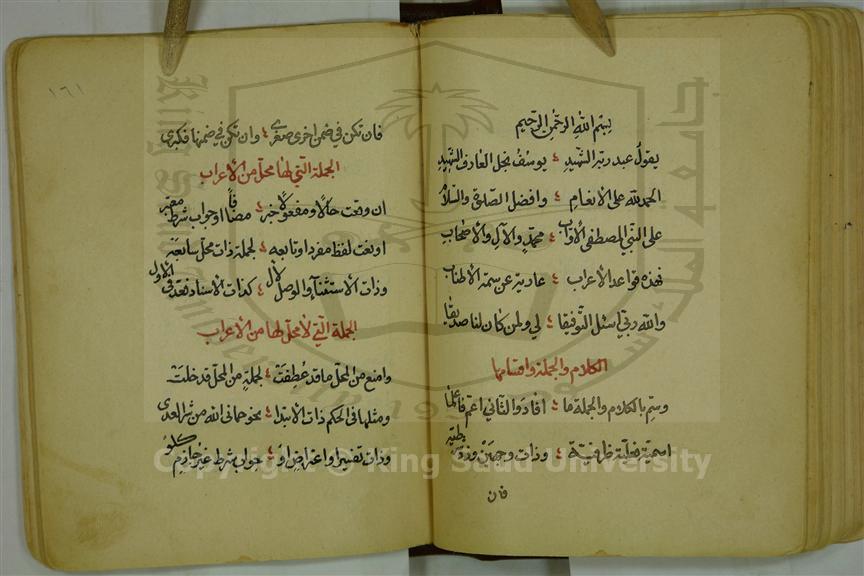 بسم الله الرحمن الرحيم
يقول عبد ربه الشهيد ؛ يوسف نجل العارف الشهيد
الحمد لله على الانعام ؛ وافضل الصلوة والسلام
على النبي المصطفى الاواب ؛ محمد والآل والاصحاب
فهذه قواعد الاعراب ؛ عارية عن سمة الاطناب
والله ربي اسئل التوفيقا ؛ لي ولمن كان لنا صديقا
الكلام والجملة واقسامها
وسم بالكلام والجملة ما ؛ افاد والثاني اعم فاعلما
اسمية فعلية ظرفية ؛ وذات وجهين وذي
فان
١٦١
فان تكن في ضمن اخرى صغرى ؛ وان تكن في ضمنها فكبرى
الجملة التي لها محل من الاعراب
ان وقعت حالا ومفعولا خبر ؛ مضافا او جواب شرط معتبر
او نعت لفظ مفرد او تابعه ؛ لجملة ذات محل سابعه
وذات الاستثناء والوصل لال ؛ كذات الاسناد فقد في الاول
الجملة التي لا محل لها من الاعراب
وامنع من المحل ما قد عطفت ؛ لجملة من المحل قد خلت
ومثلها في الحكم ذات الابتدا ؛ نحو حماني الله من شر العدى
وذات تفسير او اعتراض او ؛ جواب شرط غير جازم كلو
Copyright © King Saud University